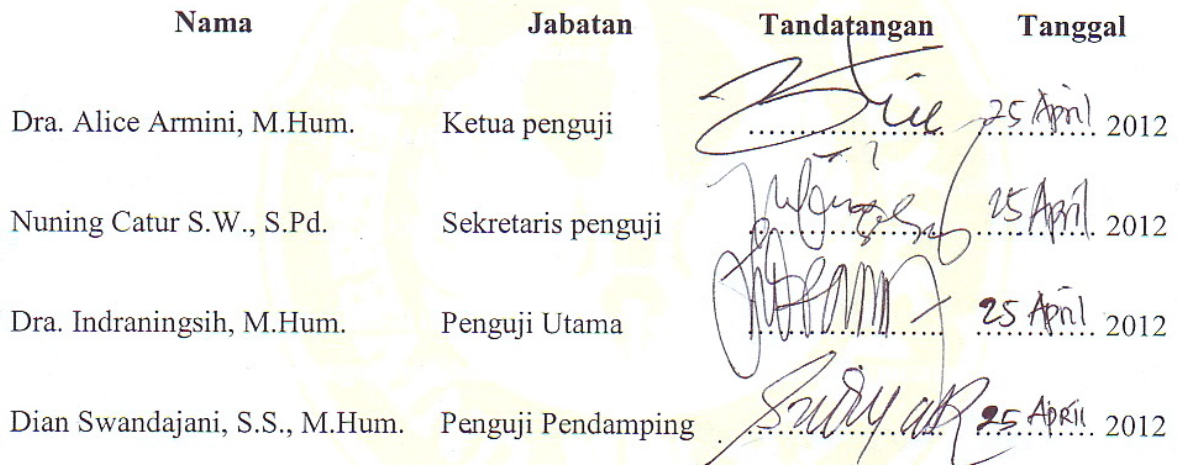 Nama Jabatan Tandatangan Tanggal
Dra. Alice Armini, M.Hum. Ketua penguji .................... 25 April 2012
Nuning Catur S.W., S.Pd. Sekretaris penguji .................... 25 April 2012
Dra. Indraningsih, M.Hum. Penguji Utama .................... 25 April 2012
Dian Swandajani, S.S., M.Hum. Penguji Pendamping .................... 25 April 2012